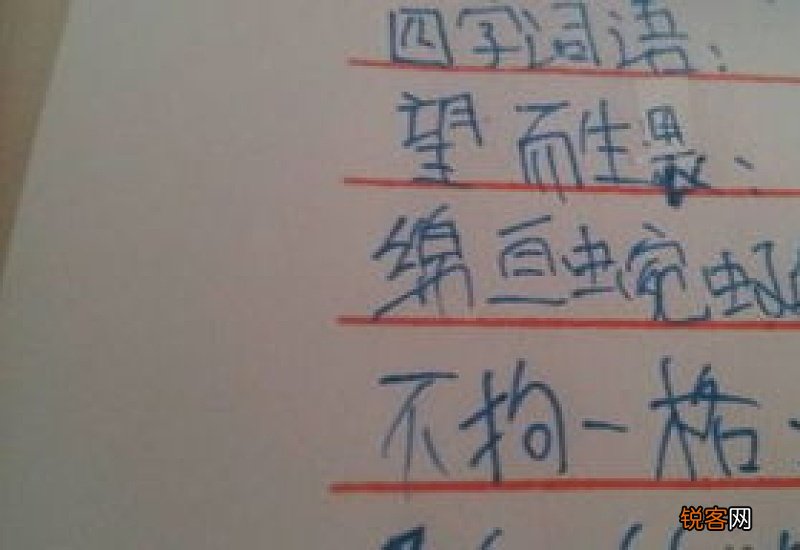 四字词语：
望而生畏、
绵亘蜿蜒
不拘一格、
锐客网